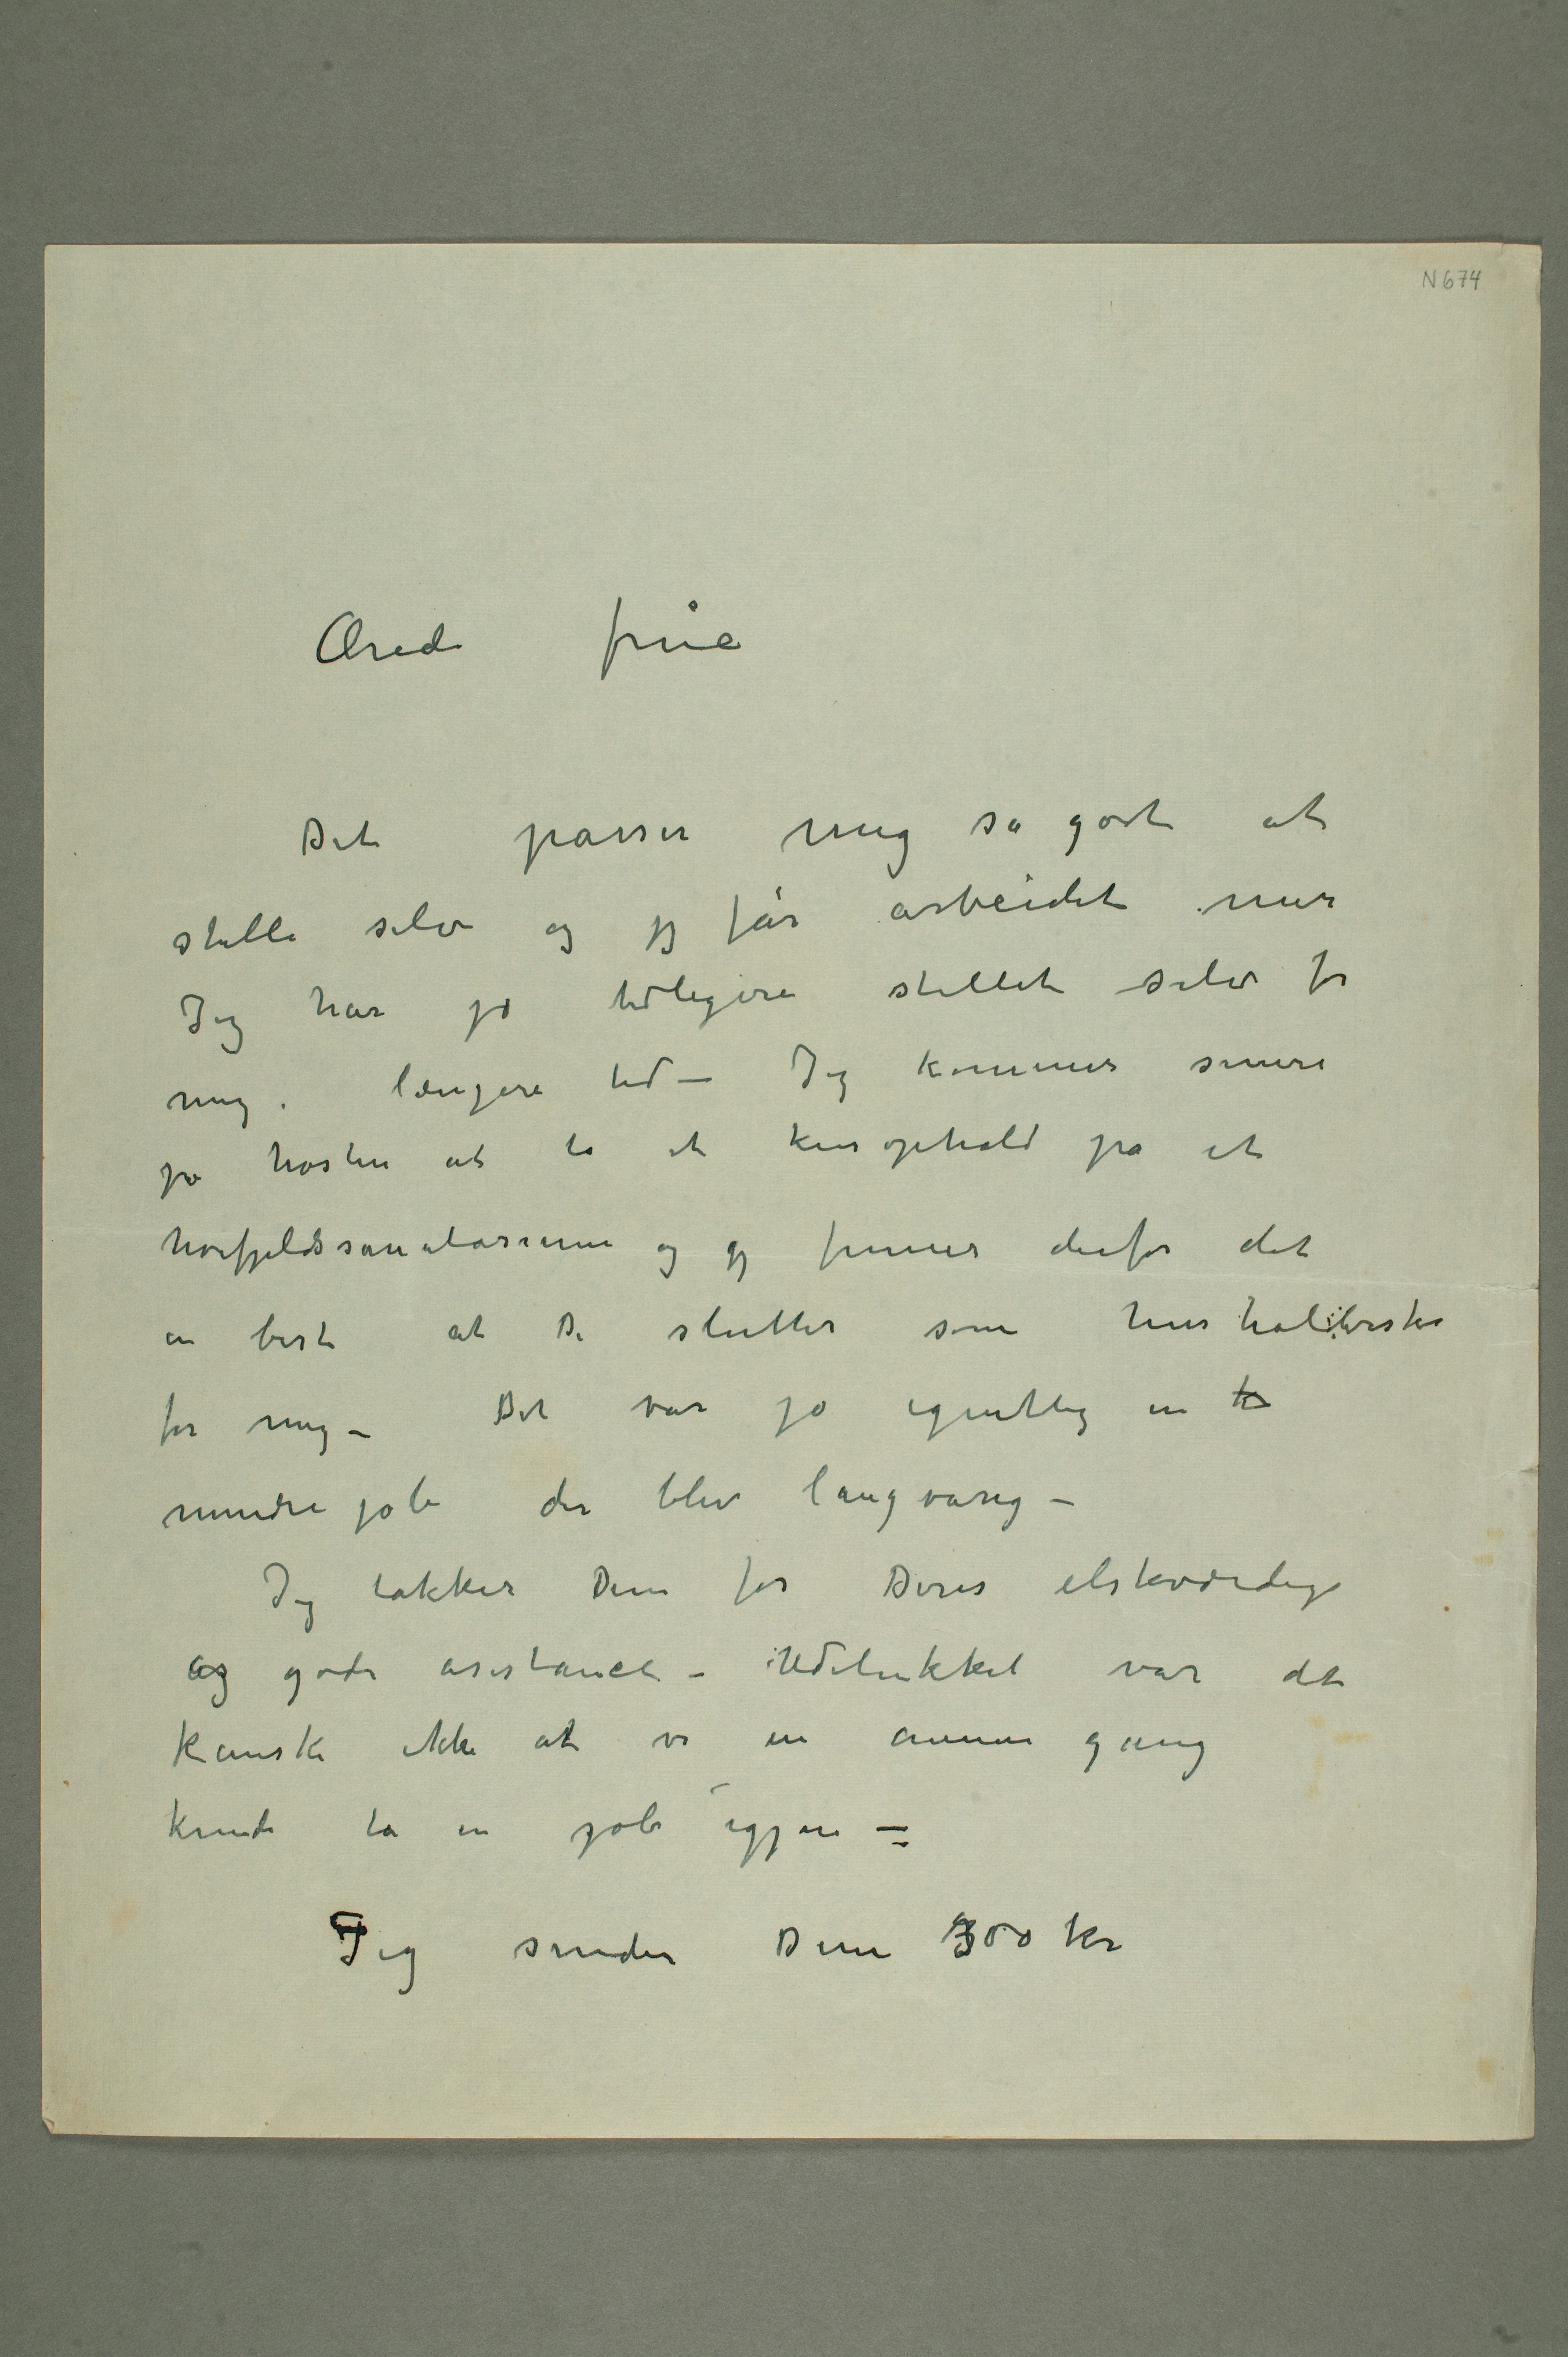 N 674
Ærede frue
Det passer mig så godt at
stelle selv og jeg får arbeidet mer
Jeg har jo tidligere stellet selv for
mig i længere tid – Jeg kommer senere
på høsten at ta et kurophold på et
høifjeldssanatorium og jeg finner derfor det
er best at De slutter som husholderske
for mig – Det var jo egentlig en
mindre job der blev langvarig –
Jeg takker Dem for Deres elskværdige
og gode asistance – Udelukket var det
kanske ikke at vi en annen gang
kunde ta en job igjen –
Jeg sender Dem 300 kr